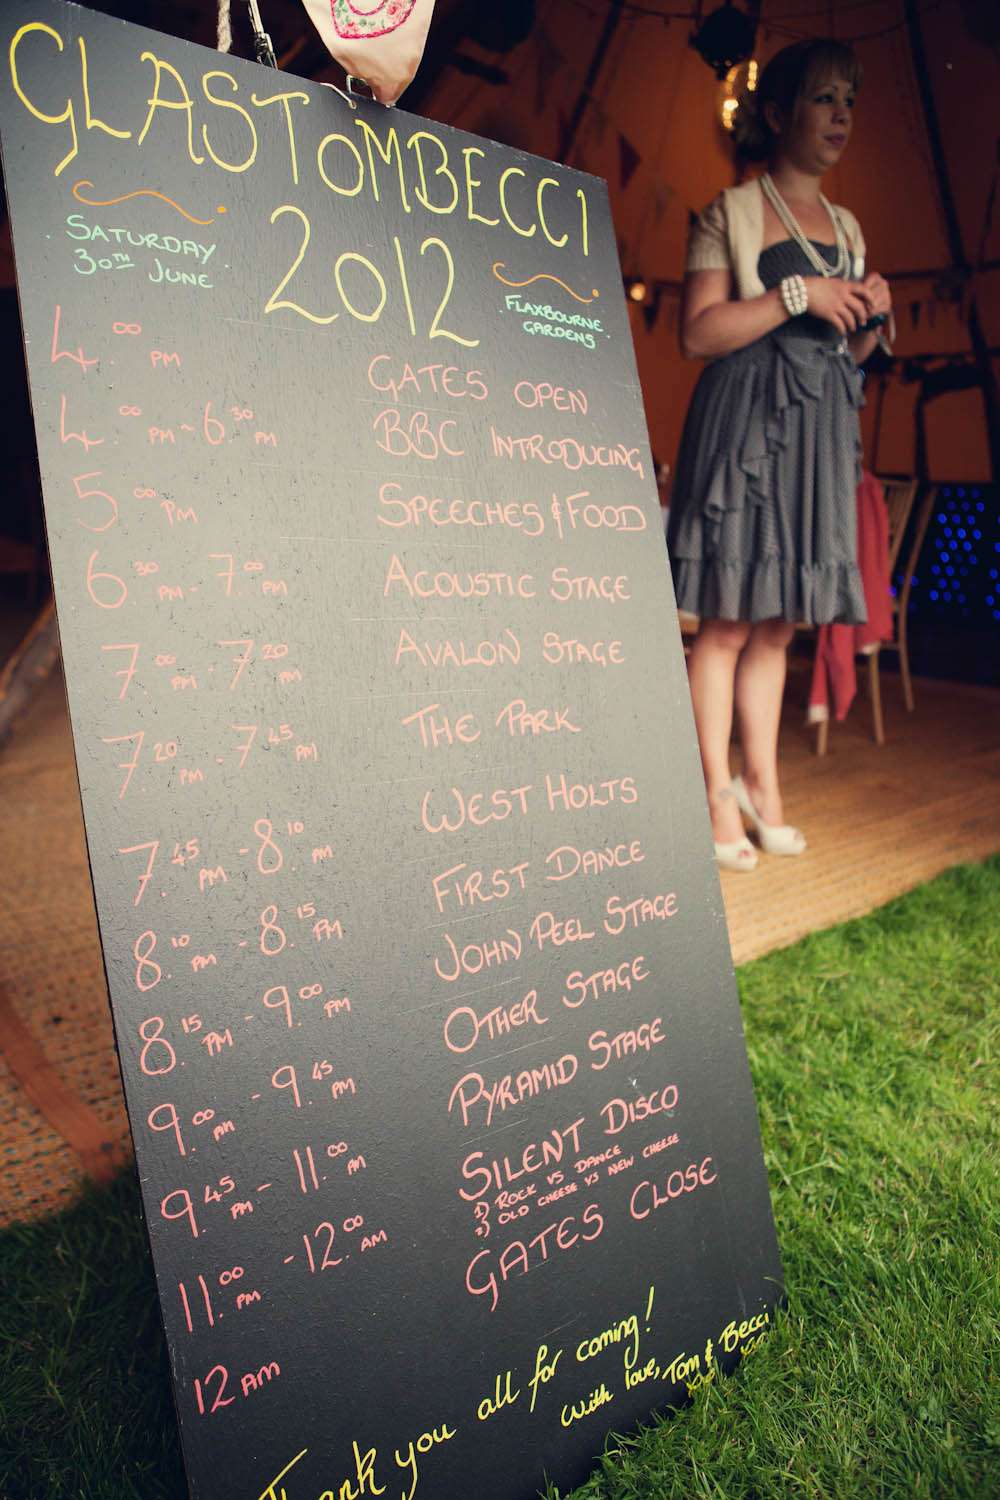 GLASTOMBECCI
2012
SATURDAY
30TH JUNE
FLAXBOURNE
GARDENS
4.00 PM GATES OPEN
4.00 PM - 6.30 PM BBC INTRODUCING
5.00 PM SPEECHES & FOOD
6.30 PM - 7.00 PM ACOUSTIC STAGE
7.00 PM - 7.20 PM AVALON STAGE
7.20 PM - 7.45 PM THE PARK
7.45 PM - 8.10 PM WEST HOLTS
8.10 PM - 8.15 PM FIRST DANCE
8.15 PM - 9.00 PM JOHN PEEL STAGE
9.00 PM - 9.45 PM OTHER STAGE
9.45 PM - 11.00 PM PYRAMID STAGE
11.00 PM - 12.00 AM SILENT DISCO
1) ROCK VS DANCE
2) OLD CHEESE VS NEW CHEESE
12 AM GATES CLOSE
Thank you all for coming!
With love, Tom & Becci
xoxo xoxo